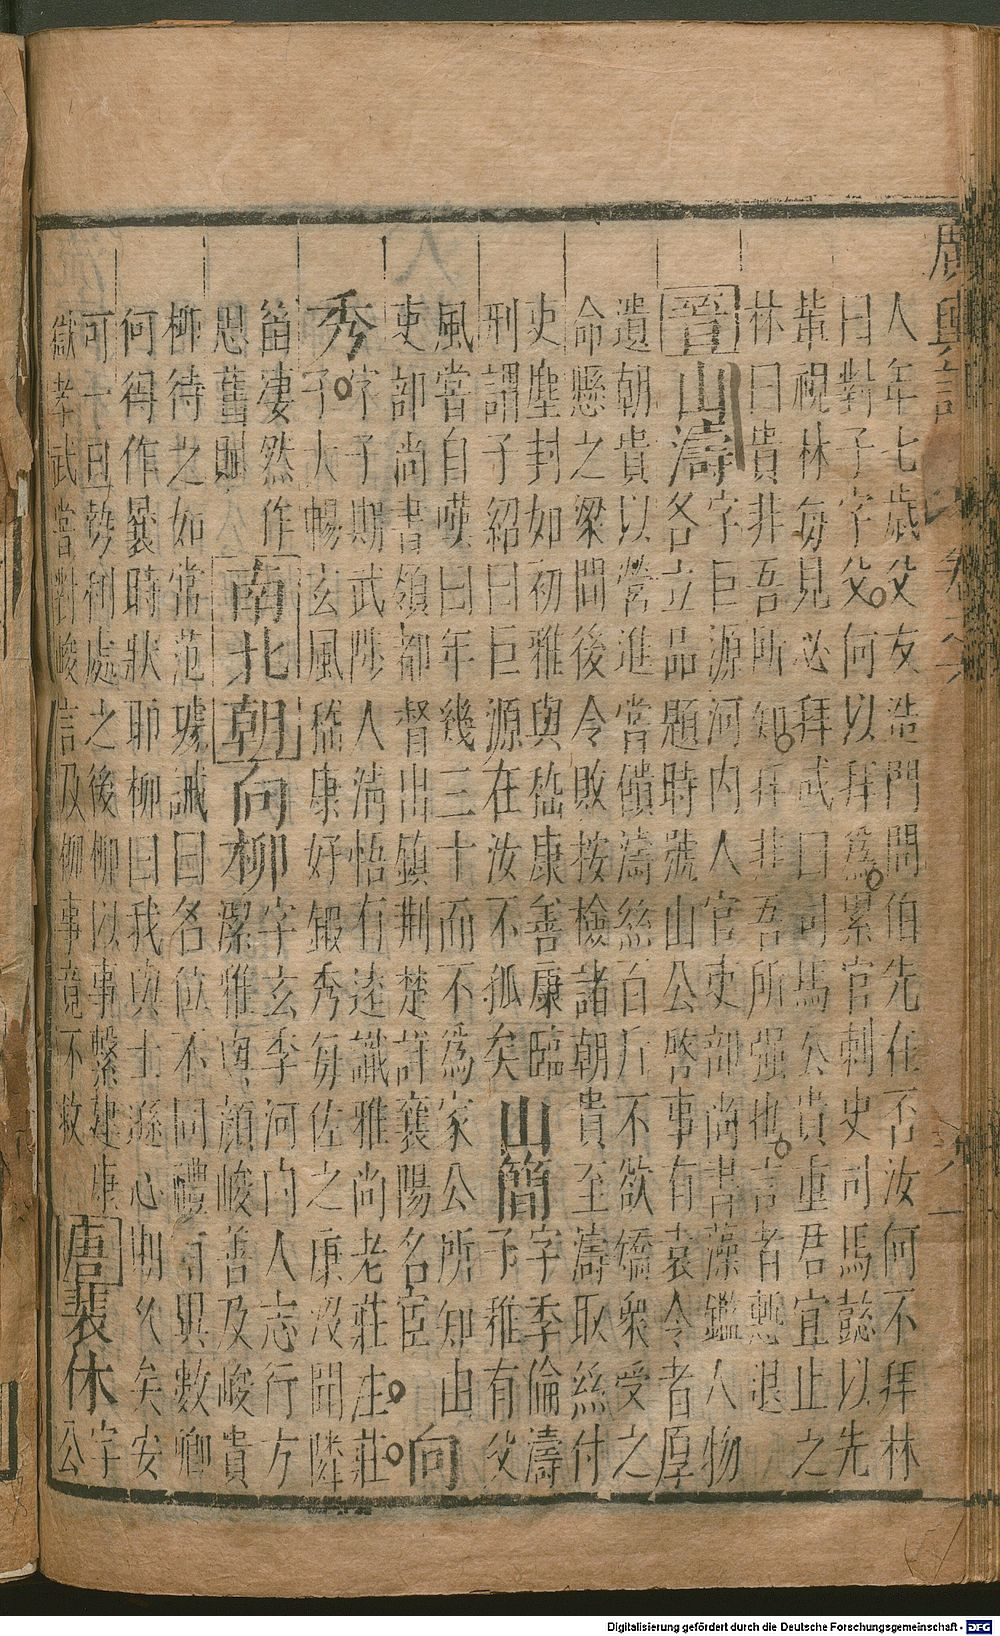 廣輿記
卷之六
人年七歲父友造門問伯先在否汝何不拜林
曰對子字父何以拜爲累官刺史司馬懿以先
輩視林每見必拜或曰司馬公貴重君宜止之
林曰貴非吾所知拜非吾所强也言者慙退
晉山濤字巨源河內人官吏部尚書藻鑑人物
各立品題時號山公啓事有袁令者厚
遺朝貴以營進嘗饋濤絲百斤不欲矯衆受之
命懸之梁間後令敗按檢諸朝貴至濤取絲付
吏塵封如初雅與嵇康善康臨
刑謂子紹曰巨源在汝不孤矣山簡字季倫濤
子雅有父
風嘗自嘆曰年幾三十而不爲家公所知由
吏部尚書領都督出鎮荆楚許襄陽名臣向
秀字子期武陟人淸悟有遠識雅尚老莊注莊
子大暢玄風嵇康好鍛秀每佐之康沒聞隣
笛凄然作
思舊賦南北朝向柳字玄季河內人志行方
潔雅與顏峻善及峻貴
柳待之如常范璩誡曰名位不同禮有異數卿
何得作曩時狀耶柳曰我與士遜心期久矣安
可一旦勢利處之後柳以事繫建康
獄孝武嘗對峻言及柳事竟不救唐裴休字
公
Digitalisierung gefördert durch die Deutsche Forschungsgemeinschaft - DFG